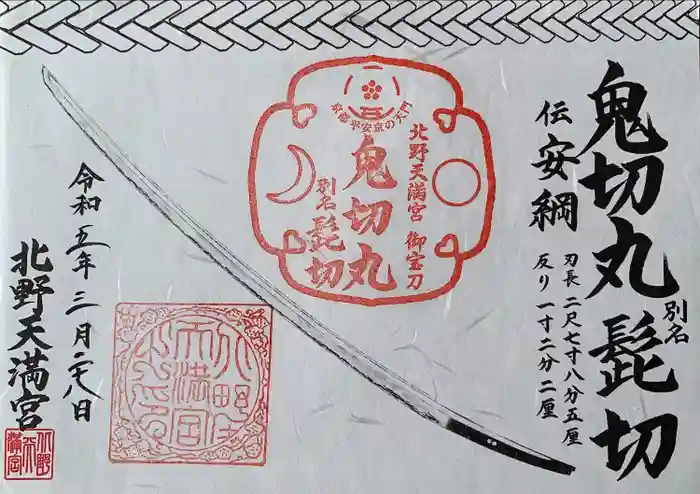 鬼切丸 別名 髭切
伝 安綱
刃長 二尺七寸八分五厘
反り 一寸二分二厘
京都平安京の天門
北野天満宮 御宝刀
鬼切丸
別名 髭切
令和五年 三月 二十八日
北野天満宮
北野天満宮